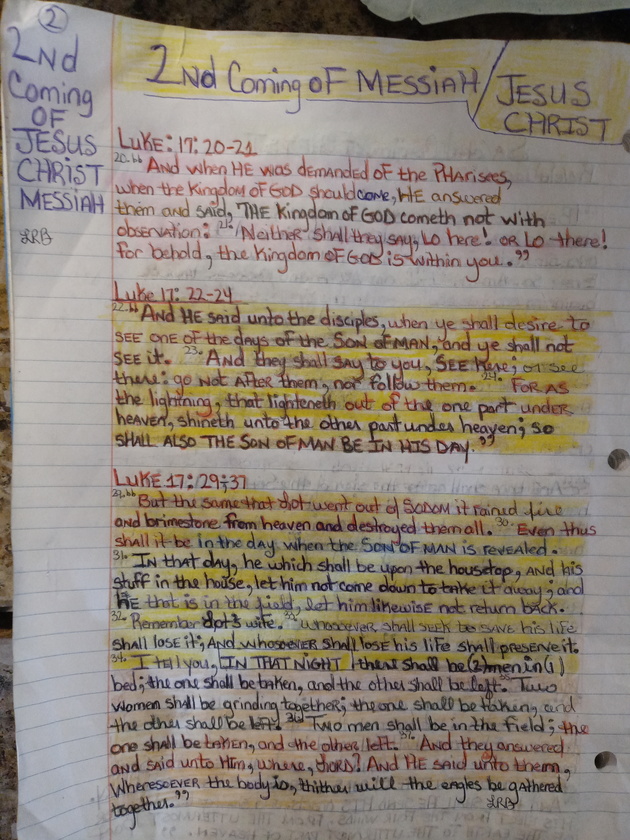 2
2Nd
Coming
OF
JESUS
CHRIST
MESSIAH
LRB
2Nd Coming OF MESSIAH / JESUS
CHRIST
Luke: 17: 20-21
20. "And when HE was demanded of the PHarisees,
when the Kingdom of GOD should come, HE answered
them and said, THE Kingdom of GOD cometh not with
observation: 21. Neither shall they say, LO here! OR LO there!
for behold, the Kingdom OF GOD is within you."
Luke 17: 22-24
22. "And HE said unto the disciples, when ye shall desire to
SEE ONE of the days of the SON OF MAN, and ye shall not
SEE it. 23. And they shall SAY to you, SEE Here; or see
there: go NOT AFTER them, nor follow them. 24. FOR AS
the lightning, that lighteneth out of the one part under
HEAVEN, shineth unto the other part under heaven; so
SHALL ALSO THE SON OF MAN BE IN HIS DAY."
Luke 17: 29-37
29. "But the same that dot went out of SODOM it rained fire
and brimstone from heaven and destroyed them all. 30. Even thus
shall it be in the day when the SON OF MAN is revealed.
31. IN that day, he which shall be upon the housetop, AND his
stuff in the house, let him not come down to take it away; and
HE that is in the field, let him likewise not return back.
32. Remember Lot's wife. 33. whosoever shall SEEK to SAVE his life
shall lose it; AND whosoever SHALL lose his life shall preserve it.
34. I tell you, IN THAT NIGHT there shall be (2) men in (1)
bed; the one shall be taken, and the other shall be left. 35. Two
women shall be grinding together; the one shall be taken, and
the other shall be left. 36. Two men shall be in the field; the
one shall be taken, and the other left. 37. And they answered
and said unto Him, where, LORD? And HE said unto them,
Wheresoever the body is, thither will the eagles be gathered
together." LRB